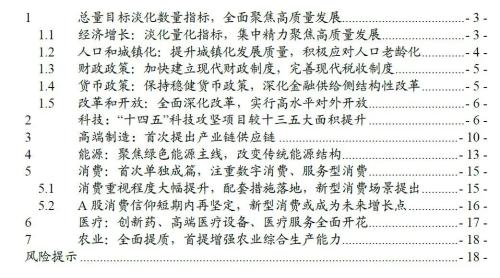 1 总量目标淡化数量指标，全面聚焦高质量发展 - 3 -
1.1 经济增长：淡化量化指标，集中精力聚焦高质量发展 - 3 -
1.2 人口和城镇化：提升城镇化发展质量，积极应对人口老龄化 - 4 -
1.3 财政政策：加快建立现代财政制度，完善现代税收制度 - 5 -
1.4 货币政策：保持稳健货币政策，深化金融供给侧结构性改革 - 5 -
1.5 改革和开放：全面深化改革，实行高水平对外开放 - 6 -
2 科技：“十四五”科技攻坚项目较十三五大面积提升 - 6 -
3 高端制造：首次提出产业链供应链 - 10 -
4 能源：聚焦绿色能源主线，改变传统能源结构 - 13 -
5 消费：首次单独成篇，注重数字消费、服务型消费 - 15 -
5.1 消费重视程度大幅提升，配套措施落地，新型消费场景提出 - 15 -
5.2 A 股消费信仰短期内再坚定，新型消费或成为未来增长点 - 16 -
6 医疗：创新药、高端医疗设备、医疗服务全面开花 - 17 -
7 农业：全面提质，首提增强农业综合生产能力 - 18 -
风险提示 - 18 -